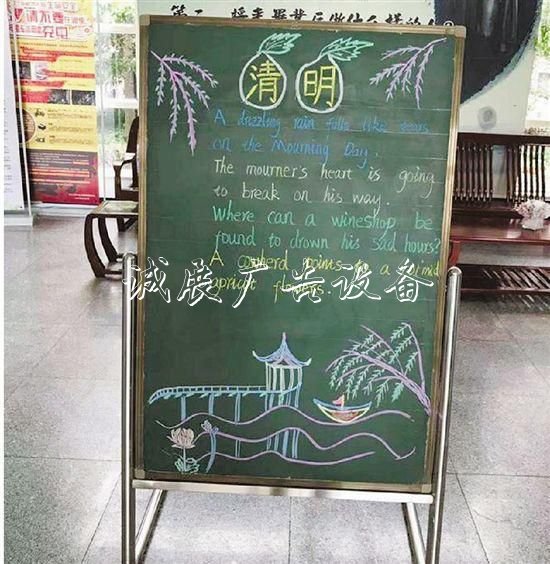 请不要在
充电
清明
A rain falls like tears
on the Mourning Day.
The mourner's heart is going
to break on his way.
Where can a wineshop be
found to drown his sad hours?
A points to a
flowers.
诚展广告设备